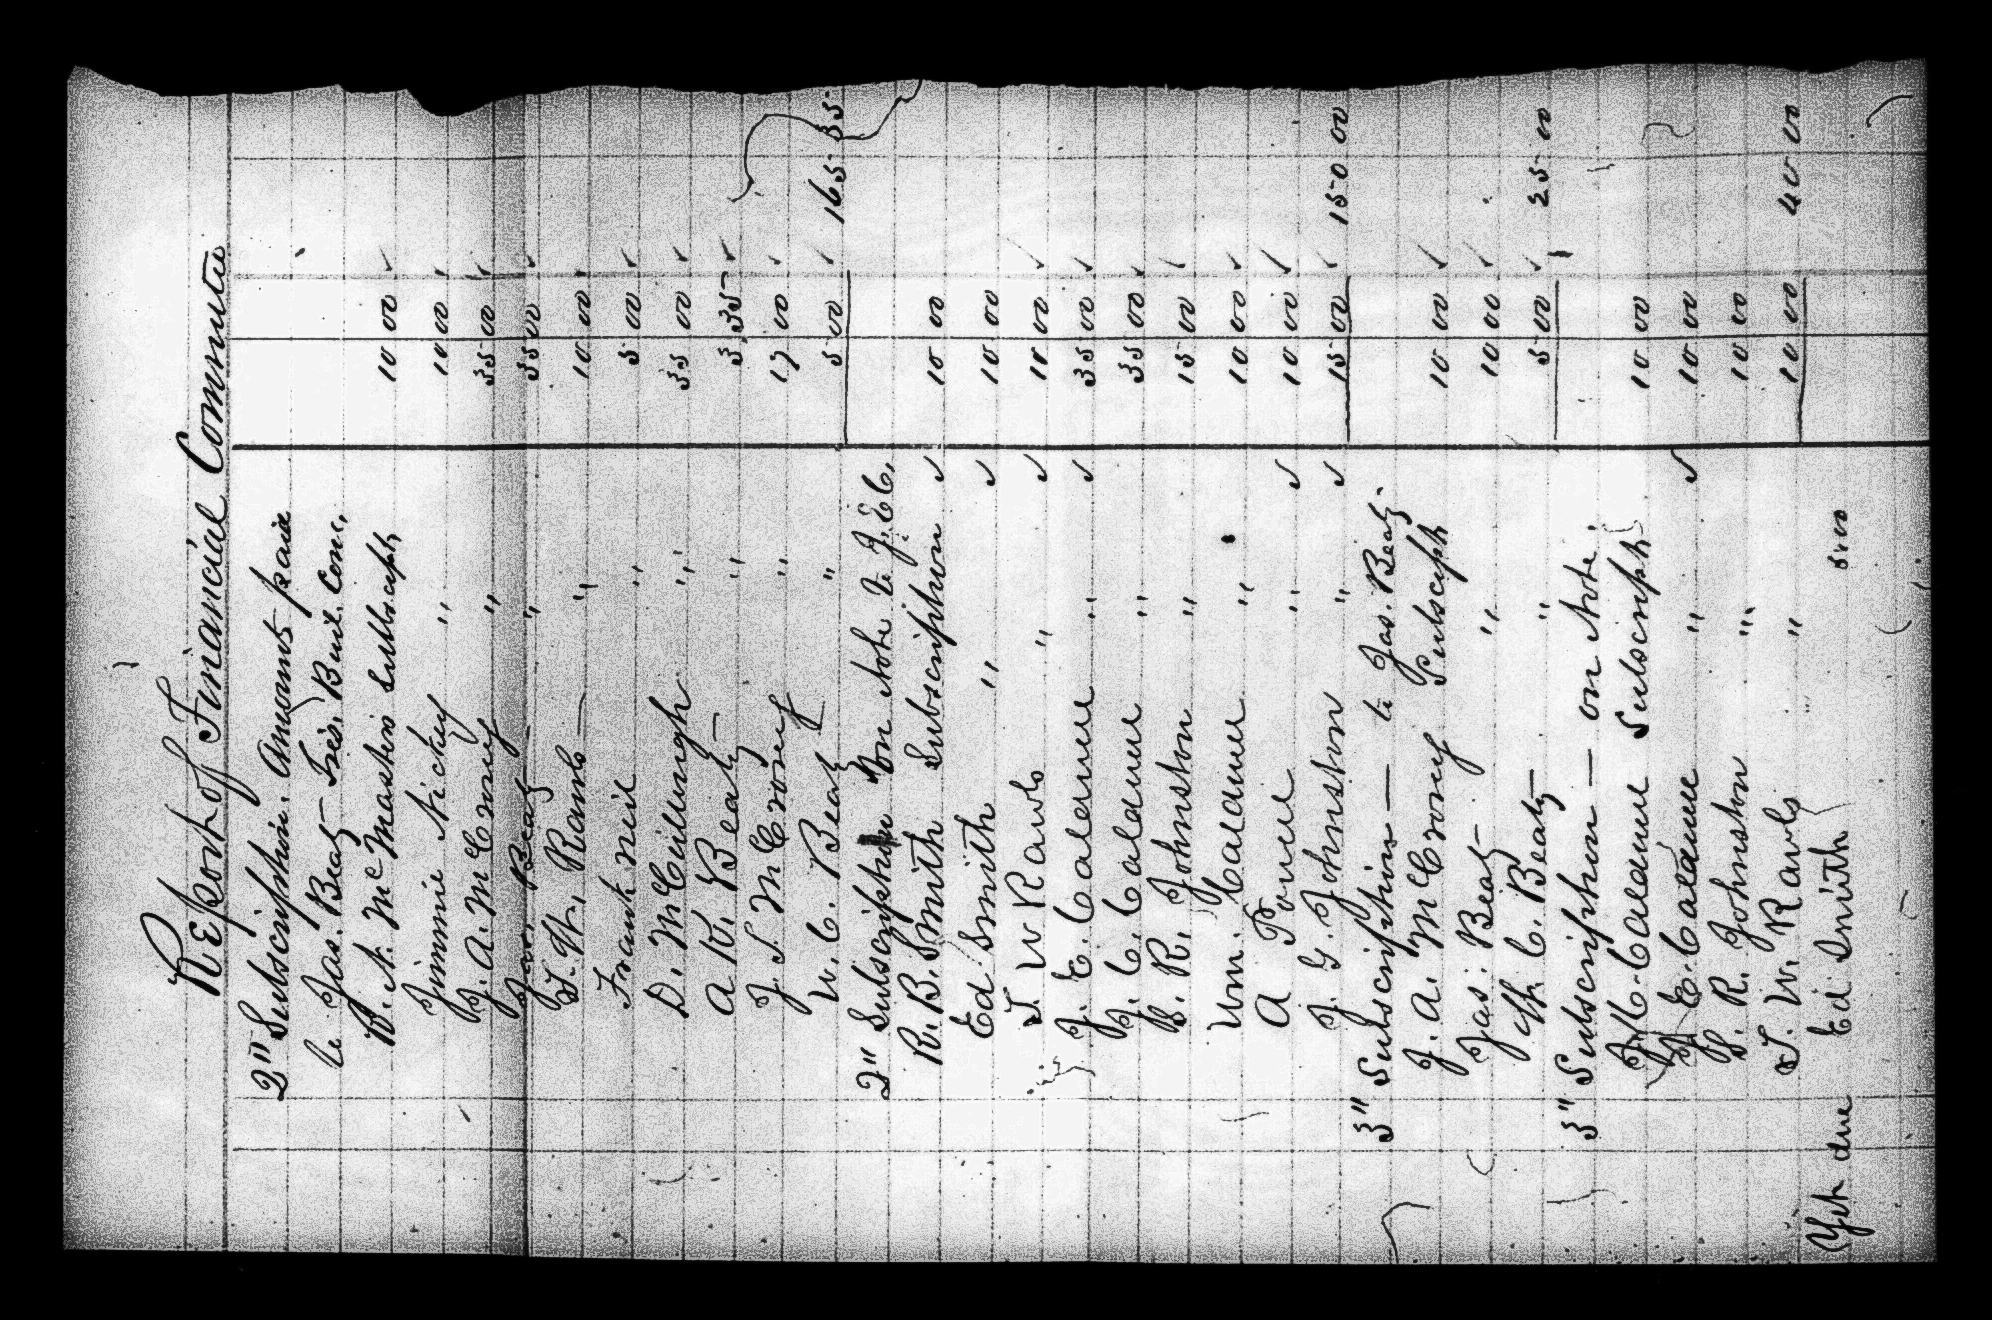 Report of Financial Committee
2" Subscription. Amounts paid
to Jas. Beaty - Tres. Buil. Com.
R. N. McMartin Subscript 10 00
Jimmie Nickey " 10 00
J. A. McCrony " 35 00
Jas. Beaty " 35 00
T. W. Rawls " 10 00
Frank Neil " 5 00
D. McCullough " 35 00
A. K. Beaty " 3 35
J. S. McCrony " 17 00
W. C. Beaty " 5 00 165 35
2" Subscription on Note to J. E. C.
R. B. Smith Subscription 10 00
Ed Smith " 10 00
T. W Rawls " 10 00
J. E. Caldwell " 35 00
J. C. Caldwell " 35 00
S. R. Johnston " 15 00
Wm. Caldwell " 10 00
A Powell " 10 00
J. G. Johnston " 15 00 150 00
3" Subscription — to Jas. Beaty.
J. A. McCrony Subscript 10 00
Jas. Beaty " 10 00
W. C. Beaty " 5 00 25 00
3" Subscription — on Note.
J. C. Caldwell Subscript 10 00
J. E. Caldwell " 10 00
S. R. Johnston " 10 00
T. W. Rawls " 10 00 40 00
Yet due Ed Smith 5.00